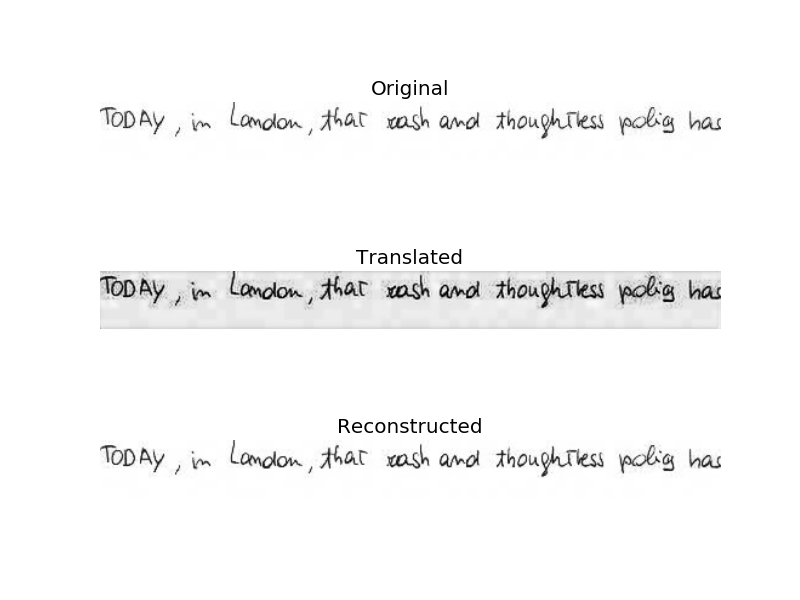 Original
TODAY, in London, that rash and thoughtless policy has
Translated
TODAY, in London, that rash and thoughtless policy has
Reconstructed
TODAY, in London, that rash and thoughtless policy has